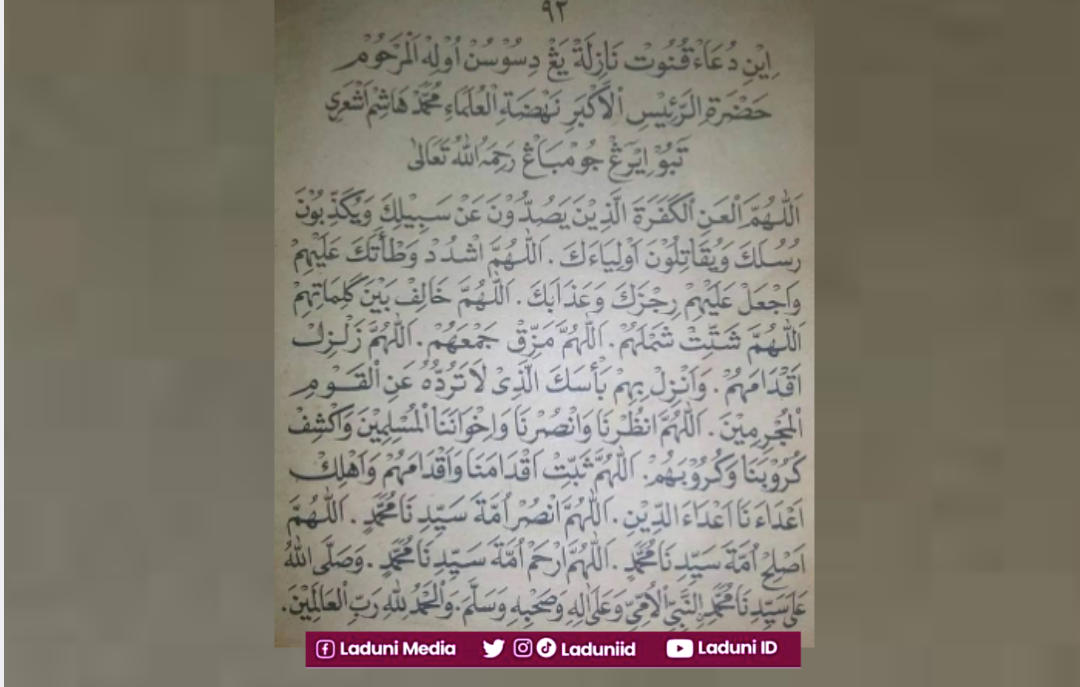 ٩٢
اِيْنِ دُعَاءْ قُنُوتْ نَازِلَةْ يَڠْ دِسُوْسُنْ اُوْلِهْ اَلْمَرْحُوْمْ
حَضْرَةِ الرَّئِيْسِ اْلاَكْبَرِ نَهْضَةِ الْعُلَمَاءِ مُحَمَّدْ هَاشِمْ اَشْعَرِي
تَبُوْ اِيْرَڠْ جُوْمْبَاڠْ رَحِمَهُ اللهُ تَعَالىٰ
اَللّٰهُمَّ الْعَنِ الْكَفَرَةَ الَّذِيْنَ يَصُدُّوْنَ عَنْ سَبِيْلِكَ وَيُكَذِّبُوْنَ
رُسُلَكَ وَيُقَاتِلُوْنَ اَوْلِيَاءَكَ . اَللّٰهُمَّ اشْدُدْ وَطْأَتَكَ عَلَيْهِمْ
وَاجْعَلْ عَلَيْهِمْ رِجْزَكَ وَعَذَابَكَ . اَللّٰهُمَّ خَالِفْ بَيْنَ كَلِمَاتِهِمْ
اَللّٰهُمَّ شَتِّتْ شَمْلَهُمْ . اَللّٰهُمَّ مَزِّقْ جَمْعَهُمْ . اَللّٰهُمَّ زَلْزِلْ
اَقْدَامَهُمْ . وَاَنْزِلْ بِهِمْ بَأْسَكَ الَّذِىْ لَا تَرُدُّهُ عَنِ الْقَوْمِ
الْمُجْرِمِيْنَ . اَللّٰهُمَّ انْظُرْنَا وَانْصُرْنَا وَاِخْوَانَنَا الْمُسْلِمِيْنَ وَاكْشِفْ
كُرُوْبَنَا وَكُرُوْبَهُمْ. اَللّٰهُمَّ ثَبِّتْ اَقْدَامَنَا وَاَقْدَامَهُمْ وَاَهْلِكْ
اَعْدَاءَنَا اَعْدَاءَ الدِّيْنِ . اَللّٰهُمَّ انْصُرْ اُمَّةَ سَيِّدِنَا مُحَمَّدٍ . اَللّٰهُمَّ
اَصْلِحْ اُمَّةَ سَيِّدِنَا مُحَمَّدٍ . اَللّٰهُمَّ ارْحَمْ اُمَّةَ سَيِّدِنَا مُحَمَّدٍ . وَصَلَّى اللهُ
عَلَى سَيِّدِنَا مُحَمَّدِ النَّبِيِّ اْلاُمِّيِّ وَعَلَى اٰلِهِ وَصَحْبِهِ وَسَلَّمَ. وَالْحَمْدُ لِلّٰهِ رَبِّ الْعَالَمِيْنَ.
Laduni Media Laduniid Laduni ID